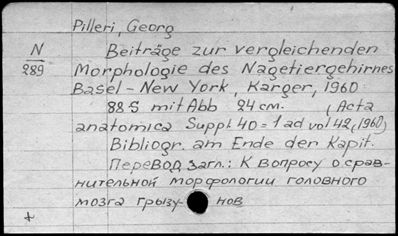 Pilleri, Georg
N Beiträge zur vergleichenden
289 Morphologie des Nagetiergehirnes
Basel - New York, Karger, 1960
88 S mit Abb 24 см. (Acta
anatomica Suppl. 40 = 1 ad vol 42, (1960)
Bibliogr. am Ende der Kapit.
Перевод загл.: К вопросу о срав-
нительной морфологии головного
мозга грызу- нов
+